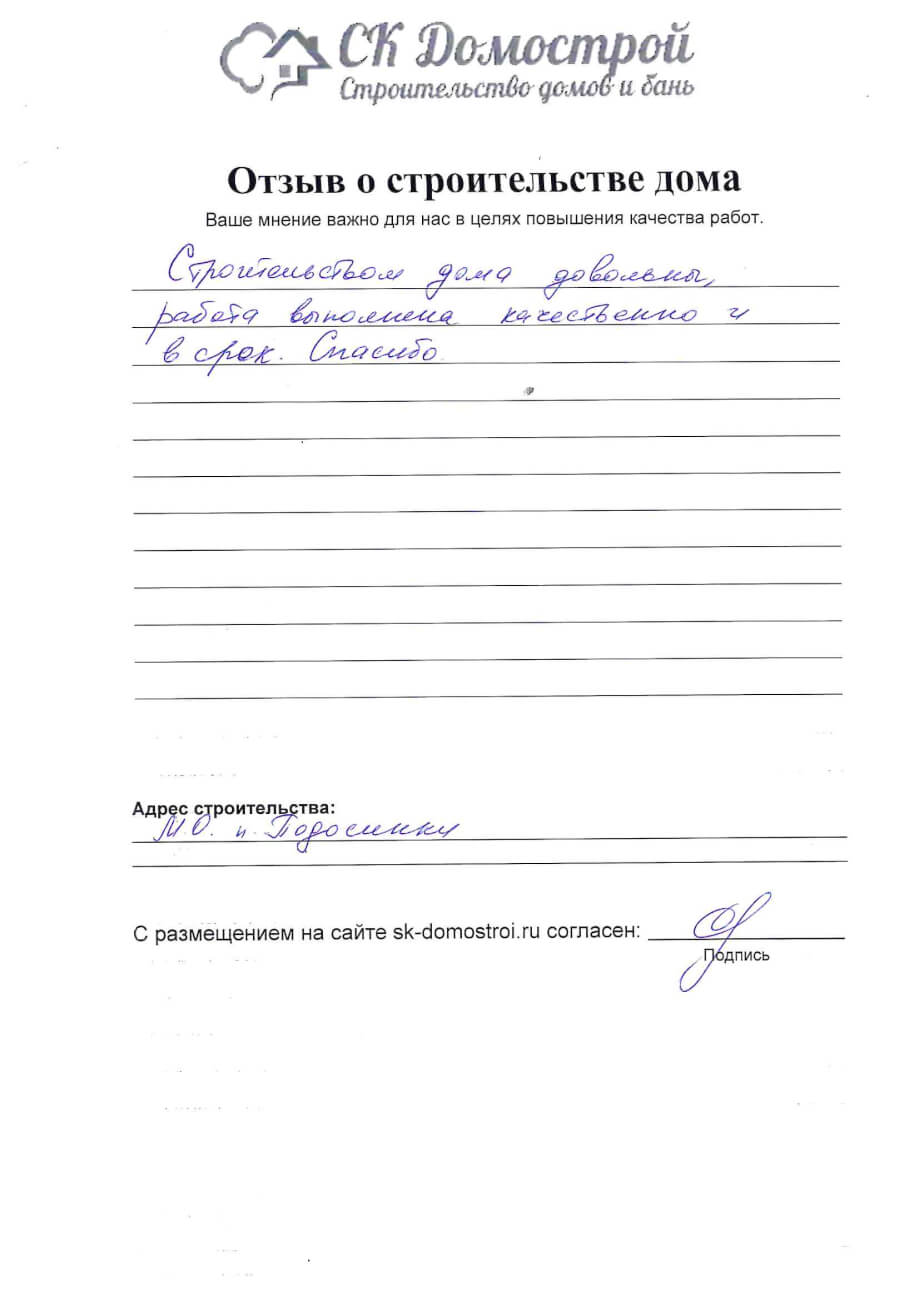 СК Домострой
Строительство домов и бань
Отзыв о строительстве дома
Ваше мнение важно для нас в целях повышения качества работ.
Строительством дома довольны,
работа выполнена качественно и
в срок. Спасибо.
Адрес строительства:
М.О. п. Подосинки
С размещением на сайте sk-domostroi.ru согласен:
Подпись